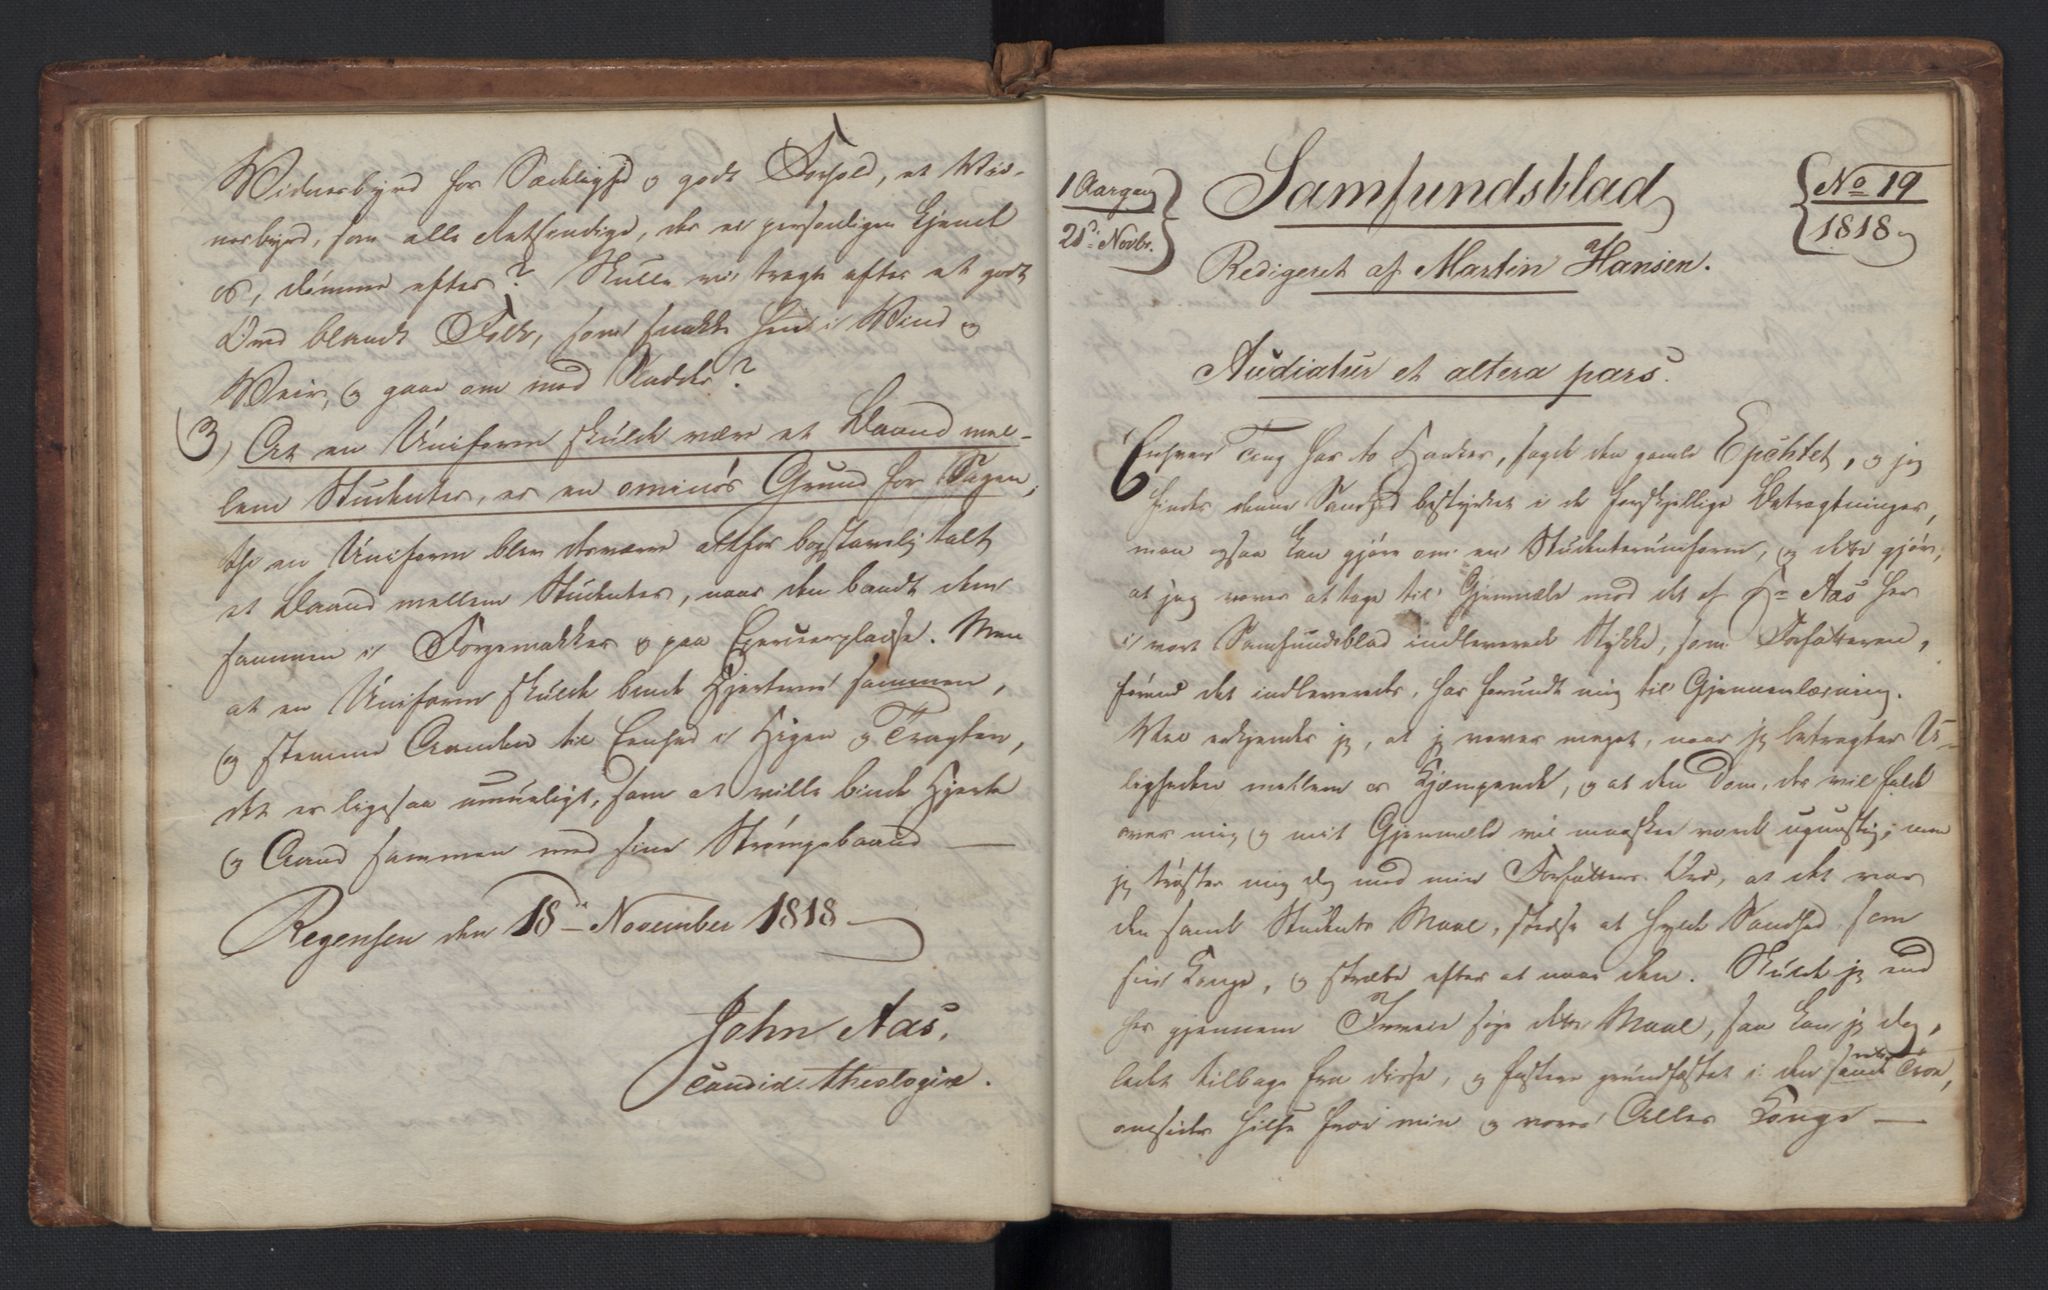 Widnesbyrd for Sædelighed og godt Forhold, et Wid-
nesbyrd, som alle Retsindige, der ei personligen kjendt
os, dömme efter? Skulle vi tragte efter et godt
Ord blandt Folk, som snakke hen i Wind og
Veir, og gaae om med Sladder?
3) At en Uniform skulde være et Baand mel-
lem Studenter, er en ominös Grund for Sagen,
thi en Uniform blev desværre altfor bogstavelig talt
et Baand mellem Studenter, naar den bandt dem
sammen i Forgemakker og paa Exerceerpladse. Men
at en Uniform skulde binde Hjerterne sammen,
og stemme Aanden til Eenhed i Higen og Tragten,
det er ligesaa umueligt, som at ville binde Hjerte
og Aand sammen med sine Strömpebaand —
Regensen den 18de November 1818
John Aas.
Candid. theologiæ.
1 Aargang
21de Novbr.
Samfundsblad
No 19
1818
Redigeret af Martin Hansen.
Audiatur et altera pars.
Enhver Ting har to Hanker, sagde den gamle Epichtet, og jeg
finder denne Sandhed bestyrket i de forskjellige Betragtninger,
man ogsaa kan gjöre om en Studenteruniform, og dette gjör,
at jeg vover at tage til Gjenmæle mod det af Hr Aas her
i vort Samfundsblad indleverede Stykke, som Forfatteren,
förend det indleveredes, har forundt mig til Gjennemlæsning.
Vel erkjender jeg, at jeg vover meget, naar jeg betragter U-
ligheden mellem os Kjæmpende, og at den Dom, der vil falde
over mig og mit Gjenmæle vil maaskee vorde ugunstig; men
jeg tröster mig dog med min Forfatters Ord, at det var
den sande Students Maal, stedse at hylde Sandhed som
sin Konge, og stræbe efter at naae den. Skulde jeg end
her gjennem Irrveie söge dette Maal, saa kan jeg dog,
ledet tilbage fra disse, og fastere grundfæstet i den sande Troe,
omsider hilse hvor min og vores Alles Konge —